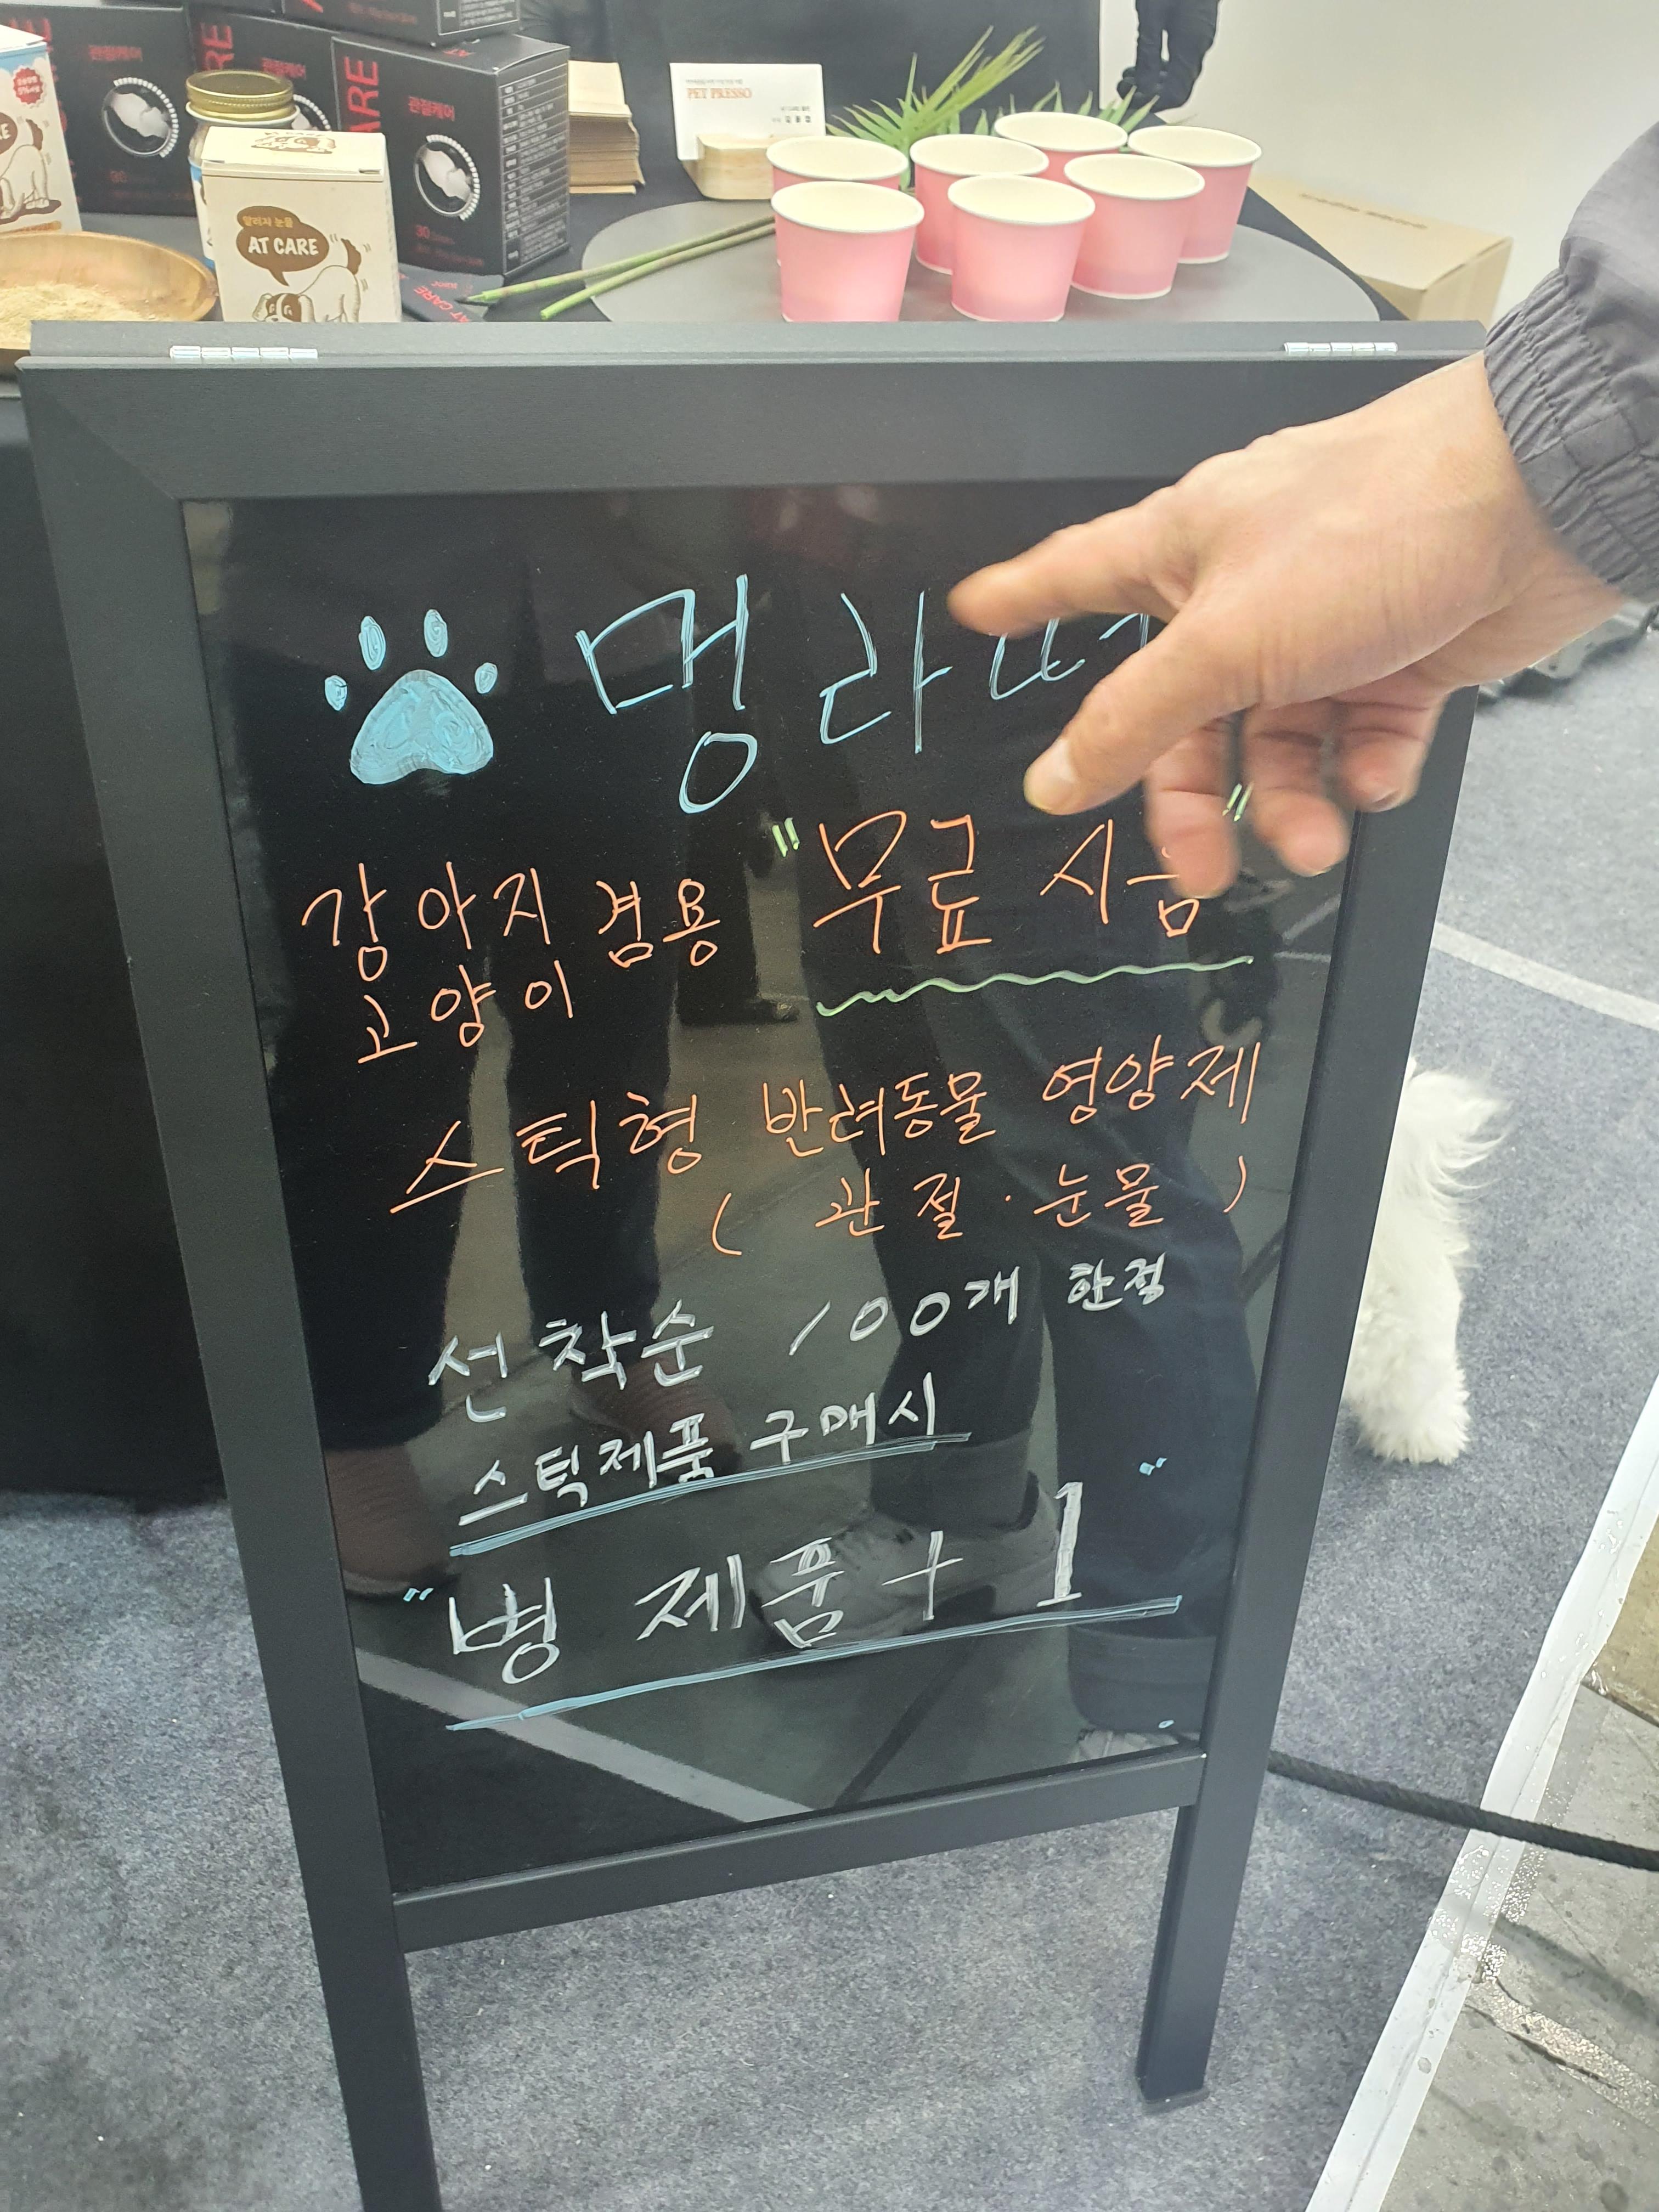 관절케어
관절케어
관절케어
PET PRESSO
알러지 눈물
AT CARE
30
멍 라
"무료 시음"
강아지 겸용
고양이
스틱형 반려동물 영양제
( 관절 · 눈물 )
선착순 100개 한정
스틱제품 구매시
"병 제품 + 1"